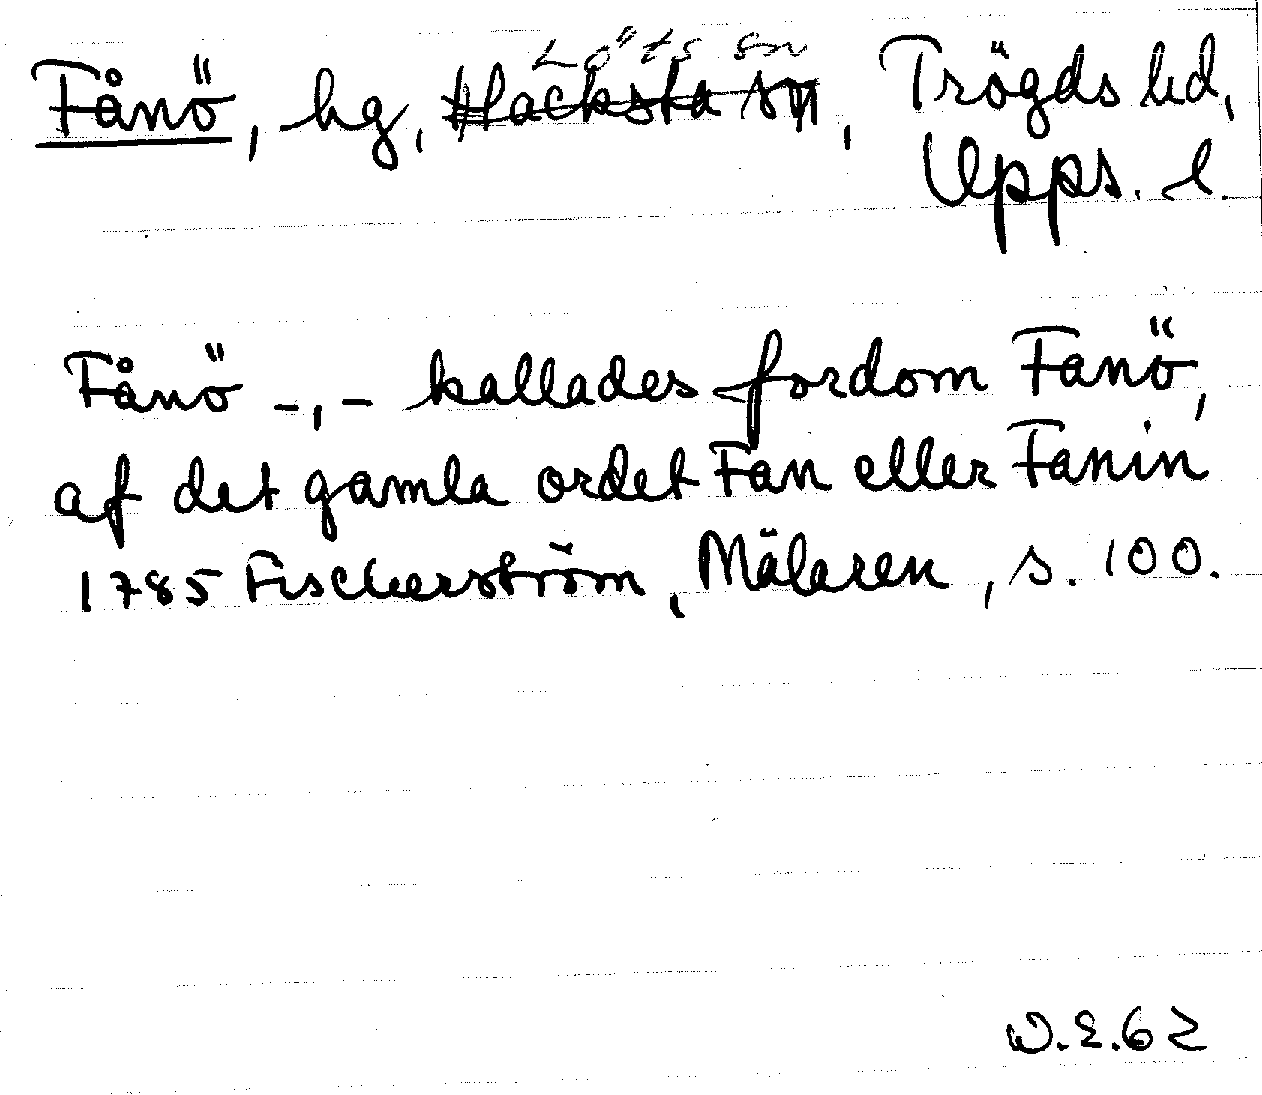 Löts sn
Fånö, hg, Hacksta sn, Trögds hd,
Upps. l.
Fånö -,- kallades fordom Fanö,
af det gamla ordet Fan eller Fanin
1785 Fischerström, Mälaren, s. 100.
W.E.62